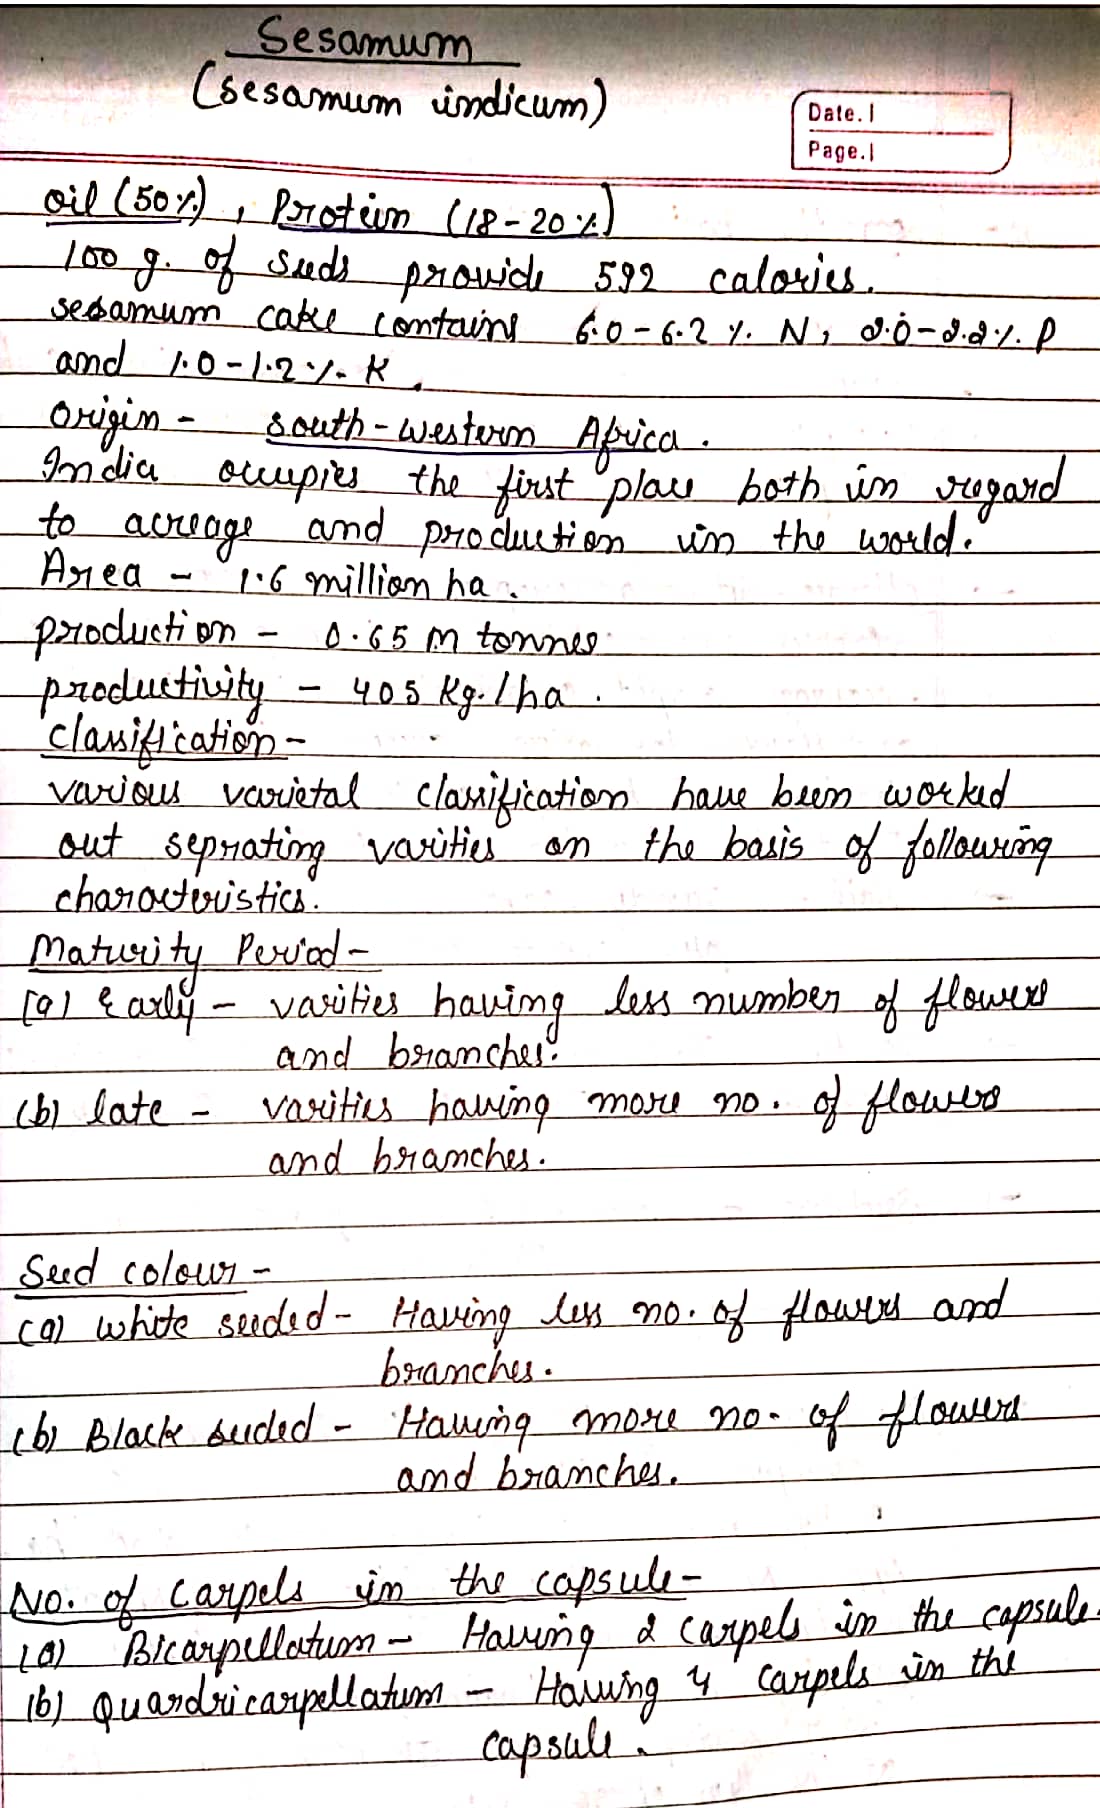 Sesamum
(sesamum indicum)
Date.
Page.
oil (50%), Protein (18-20%)
100 g. of seeds provide 592 calories.
sesamum cake contains 6.0-6.2 %. N, 2.0-2.2%. P
and 1.0-1.2%. K.
origin - south-western Africa.
India occupies the first place both in regard
to acreage and production in the world.
Area - 1.6 million ha.
production - 0.65 m tonnes
productivity - 405 Kg./ha.
classification -
various varietal classification have been worked
out seprating varities on the basis of following
characteristics.
Maturity Period -
(a) Early - varities having less number of flowers
and branches.
(b) late - varities having more no. of flowers
and branches.
Seed colour -
(a) white seeded - Having less no. of flowers and
branches.
(b) Black seeded - Having more no. of flowers
and branches.
No. of carpels in the capsule -
(a) Bicarpellatum - Having 2 carpels in the capsule.
(b) Quardricarpellatum - Having 4 carpels in the
capsule.